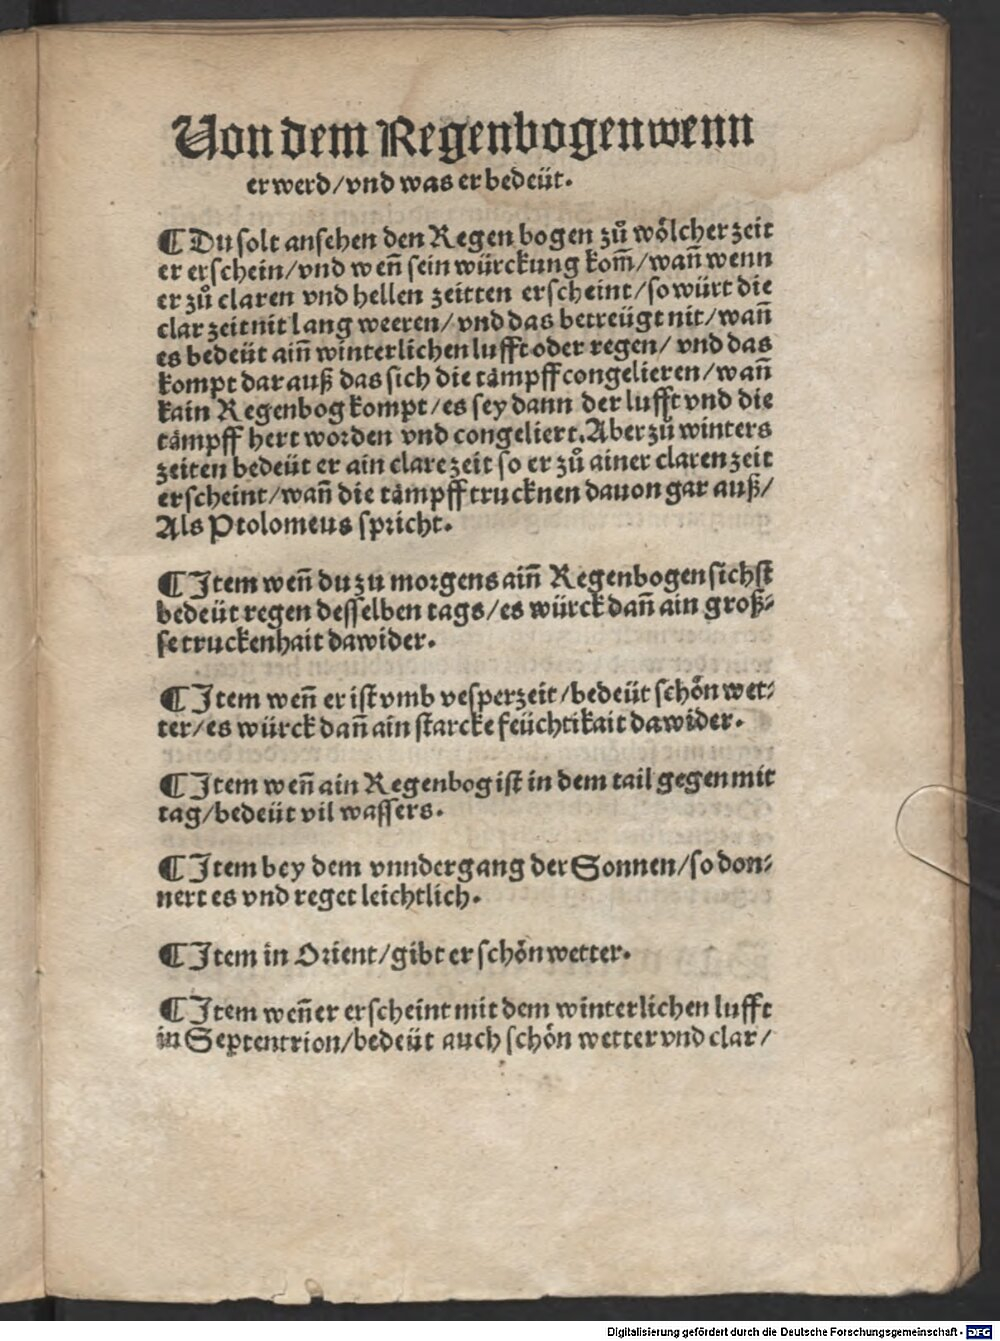 Von dem Regenbogen wenn
er werd/vnd was er bedeüt.
¶ Du solt ansehen den Regen bogen zů wölcher zeit
er erschein/vnd weñ sein würckung kom̃/wañ wenn
er zů claren vnd hellen zeitten erscheint/so würt die
clar zeit nit lang weeren/vnd das betreügt nit/wañ
es bedeüt aiñ winterlichen lufft oder regen/ vnd das
kompt dar auß das sich die tåmpff congelieren/wañ
kain Regenbog kompt/es sey dann der lufft vnd die
tåmpff hert worden vnd congeliert. Aber zů winters
zeiten bedeüt er ain clare zeit so er zů ainer claren zeit
erscheint/wañ die tåmpff trucknen dauon gar auß/
Als Ptolomeus spricht.
¶ Item weñ du zu morgens aiñ Regenbogen sichst
bedeüt regen desselben tags/es würck dañ ain groß⸗
se truckenhait dawider.
¶ Item weñ er ist vmb vesperzeit/bedeüt schön wet⸗
ter/es würck dañ ain starcke feüchtikait dawider.
¶ Item weñ ain Regenbog ist in dem tail gegen mit
tag/bedeüt vil wassers.
¶ Item bey dem vnndergang der Sonnen/so don⸗
nert es vnd reget leichtlich.
¶ Item in Orient/gibt er schön wetter.
¶ Item weñ er erscheint mit dem winterlichen lufft
in Septentrion/bedeüt auch schön wetter vnd clar/
Digitalisierung gefördert durch die Deutsche Forschungsgemeinschaft - DFG